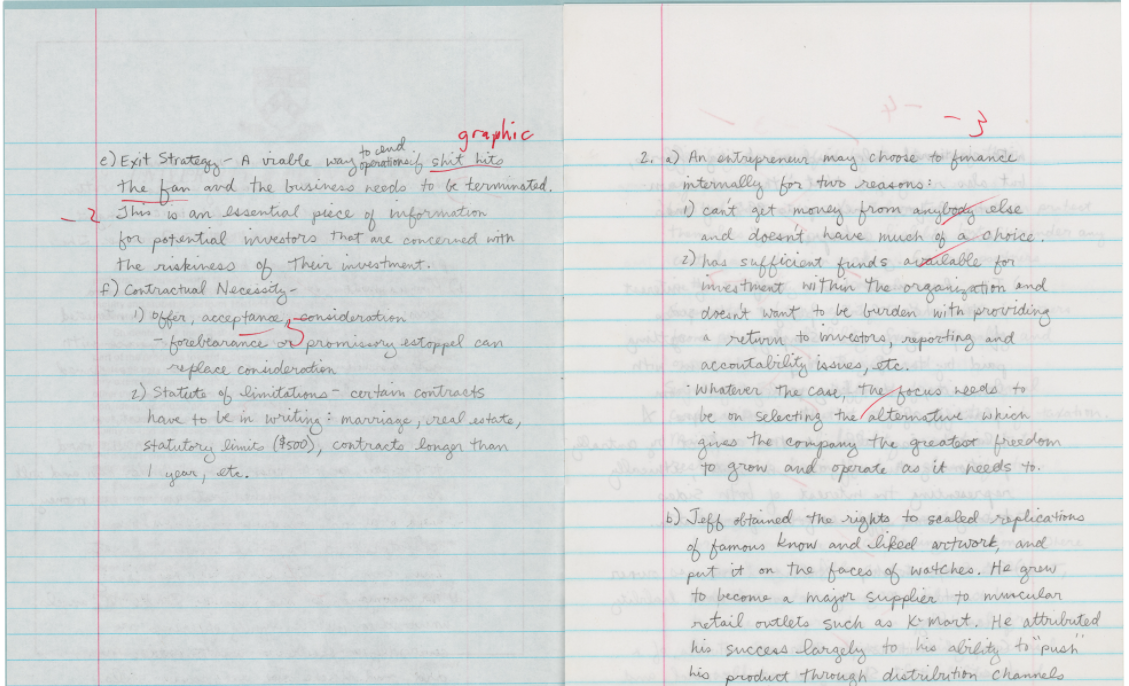 graphic
to end
e) Exit Strategy - A viable way operations if shit hits
the fan and the business needs to be terminated.
-2 This is an essential piece of information
for potential investors that are concerned with
the riskiness of their investment.
f) Contractual Necessity-
1) offer, acceptance, consideration
- forebearance or promissory estoppel can
replace consideration
2) Statute of limitations - certain contracts
have to be in writing: marriage, real estate,
statutory limits ($500), contracts longer than
1 year, etc.
-3
2. a) An entrepreneur may choose to finance
internally for two reasons:
1) can't get money from anybody else
and doesn't have much of a choice.
2) has sufficient funds available for
investment within the organization and
doesn't want to be burden with providing
a return to investors, reporting and
accountability issues, etc.
· Whatever the case, the focus needs to
be on selecting the alternative which
gives the company the greatest freedom
to grow and operate as it needs to.
b) Jeff obtained the rights to scaled replications
of famous know and liked artwork, and
put it on the faces of watches. He grew
to become a major supplier to
retail outlets such as K-mart. He attributed
his success largely to his ability to "push"
his product through distribution channels